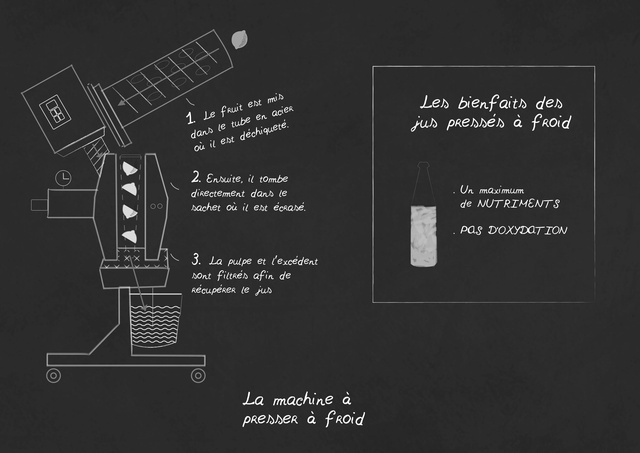 1. Le fruit est mis
dans le tube en acier
où il est déchiqueté.
2. Ensuite, il tombe
directement dans le
sachet où il est écrasé.
3. La pulpe et l'excédent
sont filtrés afin de
récupérer le jus
La machine à
presser à froid
Les bienfaits des
jus pressés à froid
. Un maximum
de NUTRIMENTS
. PAS D'OXYDATION